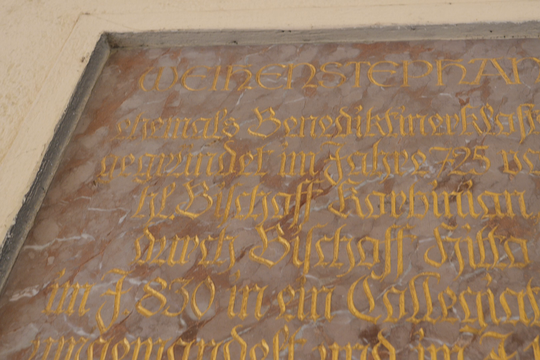 WEIHENSTEPHAN
ehemals Benediktinerklos
gegründet im Jahre 725 vo
hl. Bischoff Korbinian,
durch Bischoff Hitto
im J. 830 in ein Collegiat
umgewandelt und im J